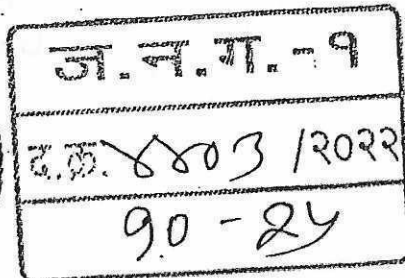 अ.न.ग.-१
द.क्र. ४४०३ /२०२२
१० - २५